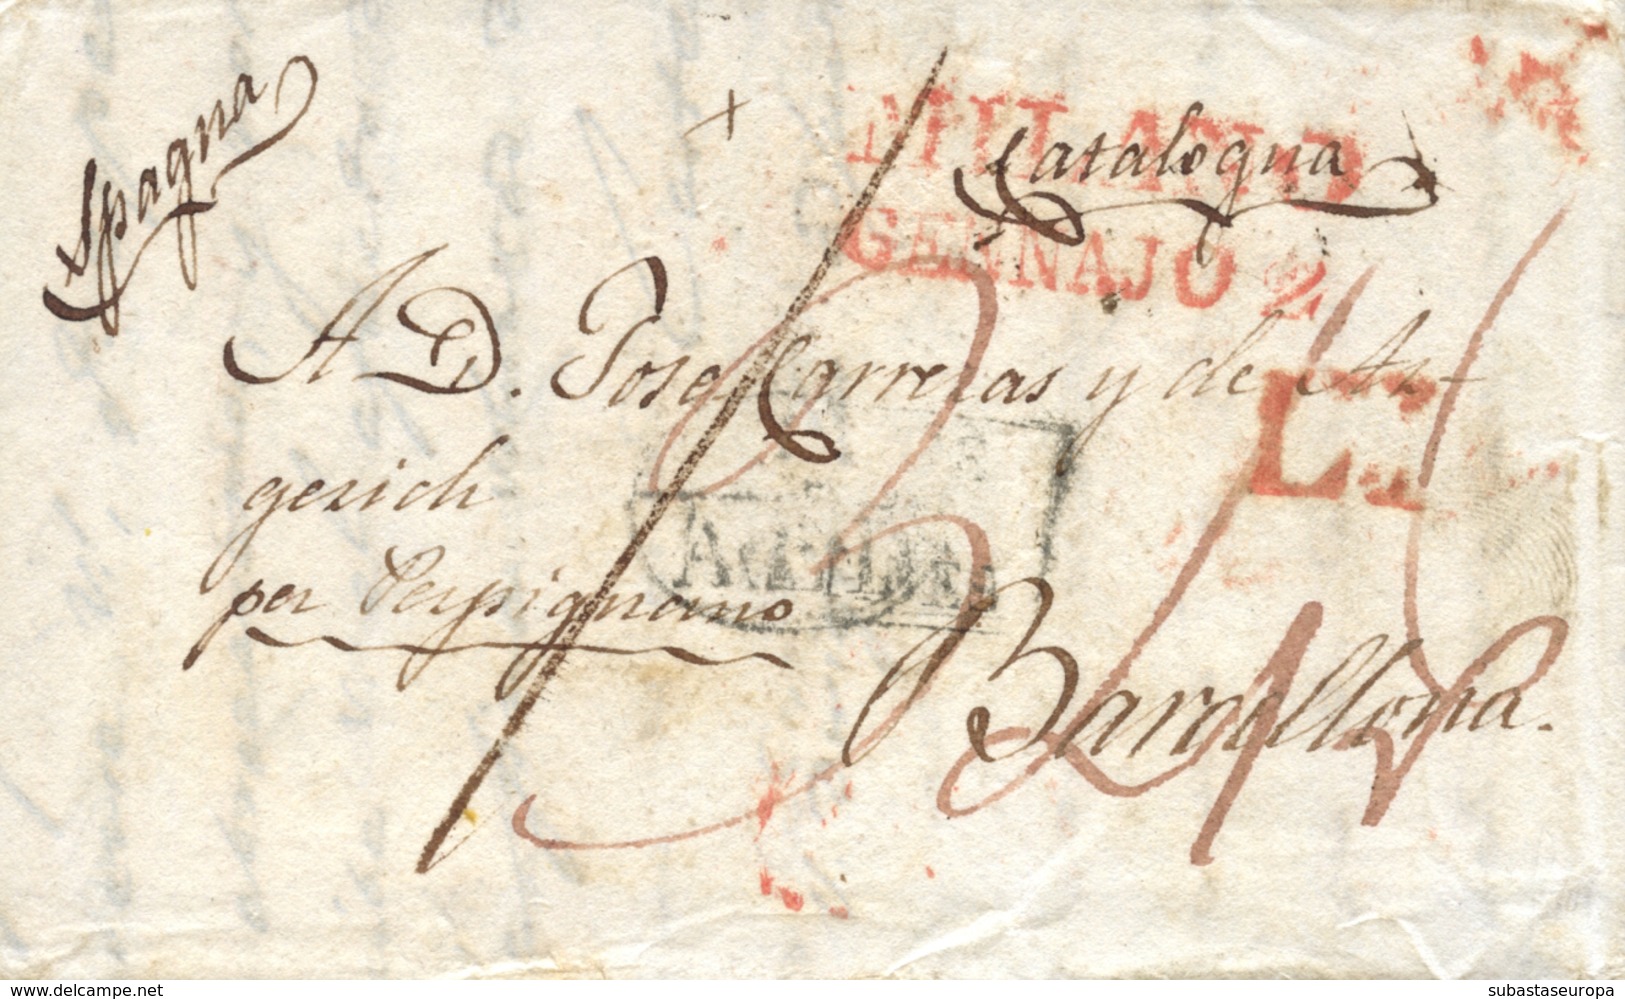 Spagna
MILANO
Catalogna
GENNAJO 2
A D. Jose Carreras y de Ar-
gerich
L.T.
per Perpignano
Barcellona.
www.delcampe.net
subastaseuropa